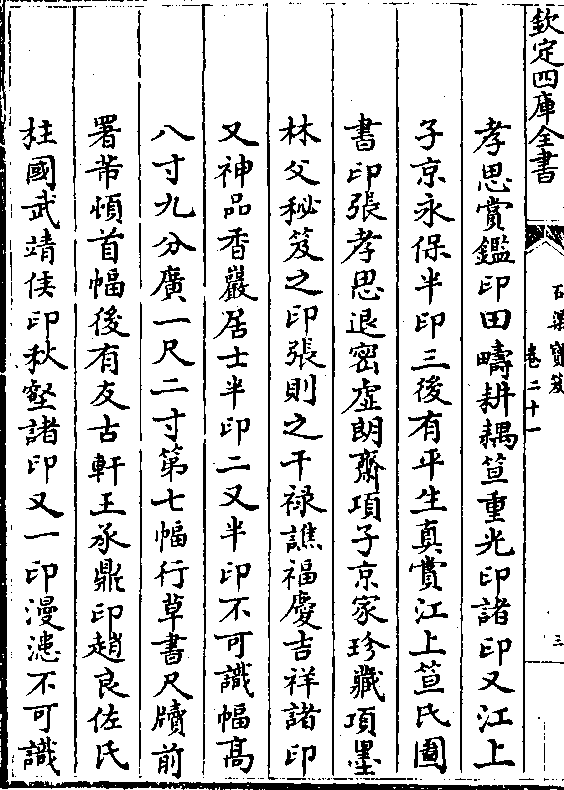 欽定四庫全書
石渠寶笈
卷二十一
三
孝思賞鑑印田疇耕耦笪重光印諸印又江上
子京永保半印三後有平生真賞江上笪氏圖
書印張孝思退密虛朗齋項子京家珍藏項墨
林父秘笈之印張則之干祿譙福慶吉祥諸印
又神品香巖居士半印二又半印不可識幅高
八寸九分廣一尺二寸第七幅行草書尺牘前
署芾頓首幅後有友古軒王承鼎印趙良佐氏
柱國武靖侯印秋壑諸印又一印漫漶不可識